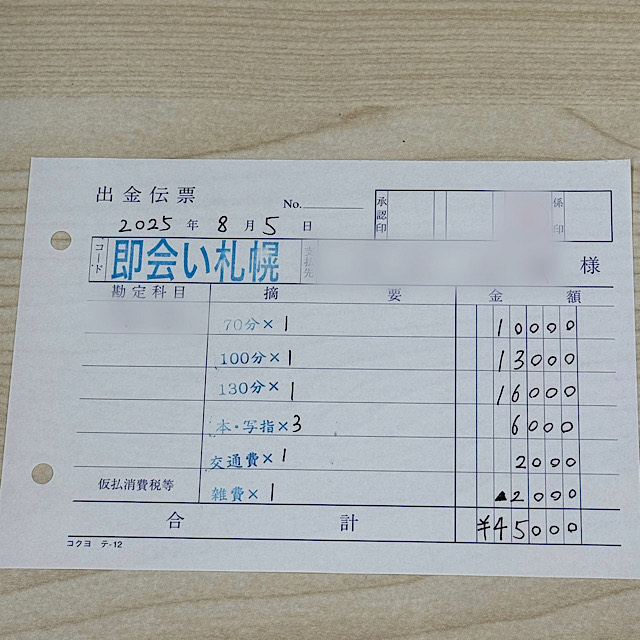 出金伝票
No.
承認印
係印
2025年8月5日
コード 即会い札幌 支払先 様
勘定科目 摘要 金額
70分×1 10000
100分×1 13000
130分×1 16000
本・写指×3 6000
交通費×1 2000
仮払消費税等 雑費×1 ▲2000
合計 ¥45000
コクヨ テ-12